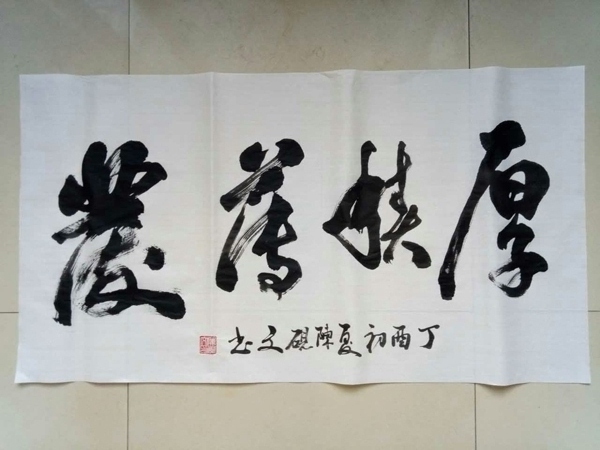 厚積薄發
丁酉初夏陳硯文书